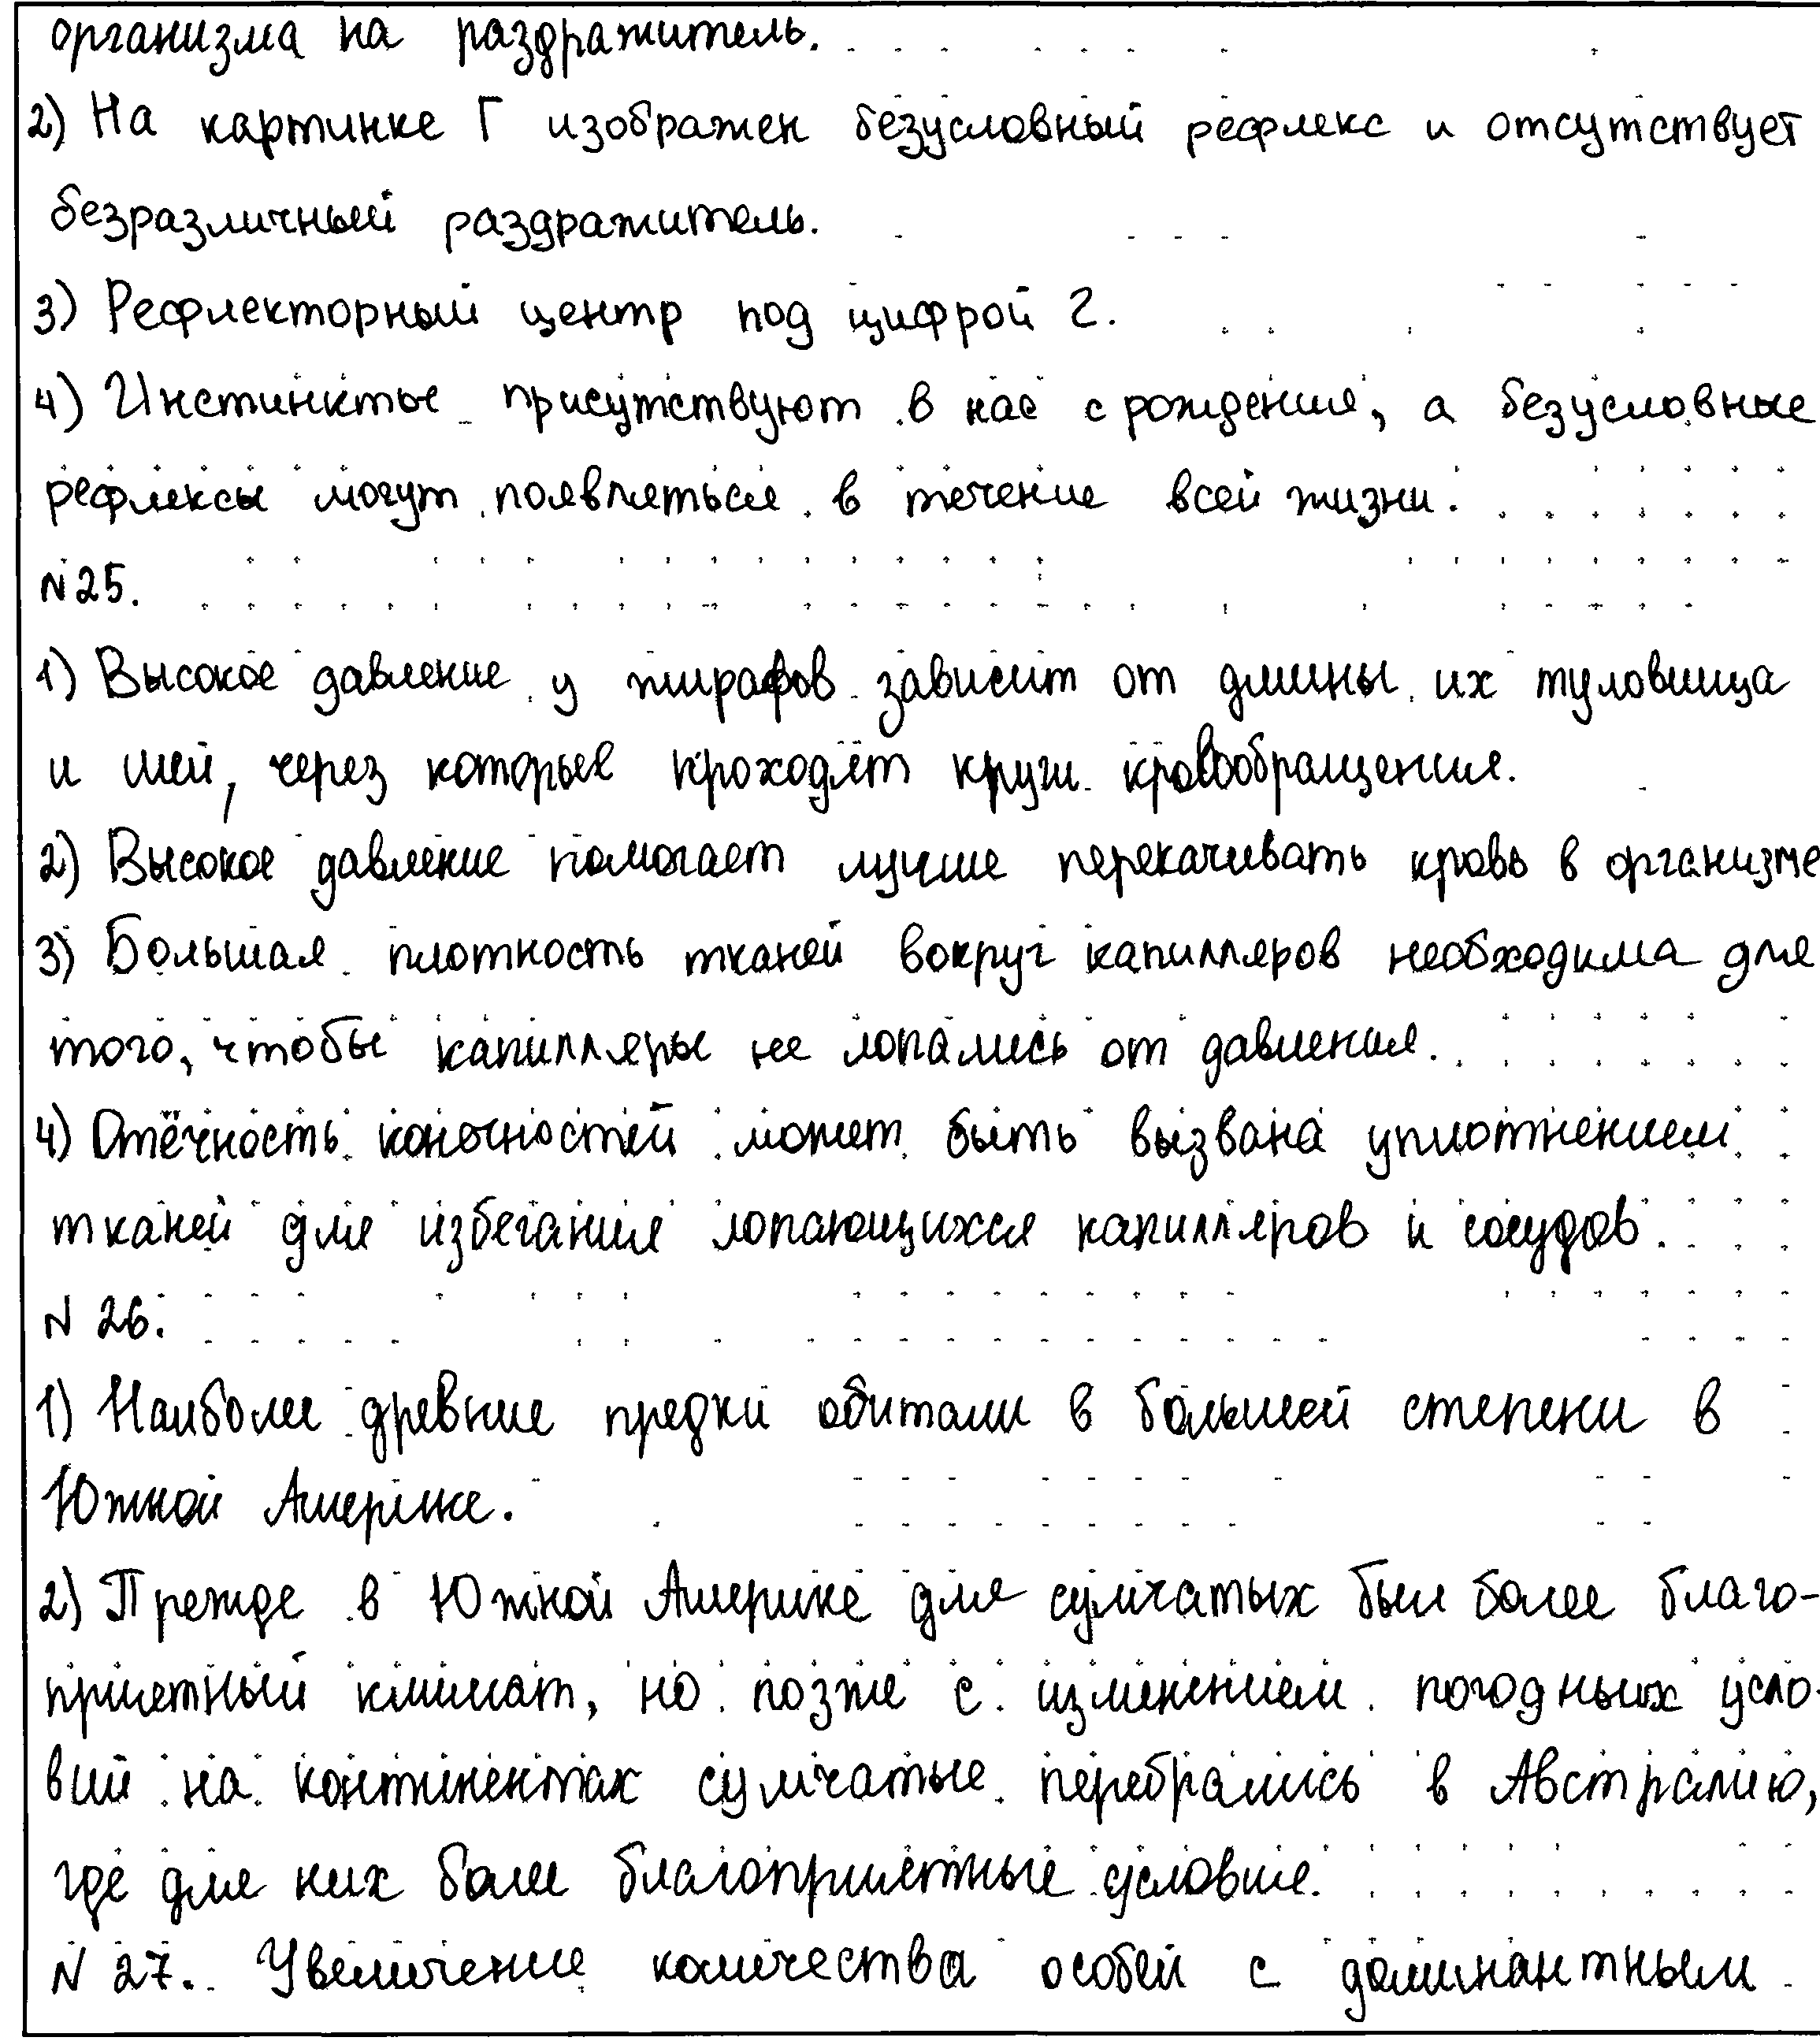 организма на раздражитель.
2) На картинке Г изображен безусловный рефлекс и отсутствует
безразличный раздражитель.
3) Рефлекторный центр под цифрой 2.
4) Инстинкты присутствуют в нас с рождения, а безусловные
рефлексы могут появляться в течение всей жизни.
N25.
1) Высокое давление у жирафов зависит от длины их туловища
и шеи, через которые проходят круги кровообращения.
2) Высокое давление помогает лучше перекачивать кровь в организме
3) Большая плотность тканей вокруг капилляров необходима для
того, чтобы капилляры не лопались от давления.
4) Отёчность конечностей может быть вызвана уплотнением
тканей для избегания лопающихся капилляров и сосудов.
N 26.
1) Наиболее древние предки обитали в большей степени в
Южной Америке.
2) Прежде в Южной Америке для сумчатых был более благо-
приятный климат, но позже с изменением погодных усло-
вий на континентах сумчатые перебрались в Австралию,
где для них более благоприятные условия.
N 27. Увеличение количества особей с доминантным